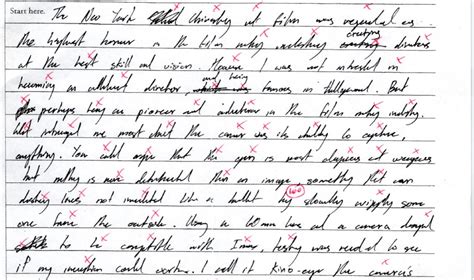 Start here. The New York University of film was regarded as
the highest honour in the film making industry creating directors
at the best skill and vision. However I was not interested in
becoming an director and being famous in Hollywood. But
perhaps being an pioneer and in the film making industry.
What intrigued me most about the camera was its ability to capture,
anything. You could argue that the pen is most dangerous of weapons
but nothing is more than an image something that can
destroy lives not like a bullet but slowly some
one from the outside. Using a 60mm lens and a camera
to be compatible with I max, testing was needed to see
if my invention could work. I call it Kino-eye the camera is